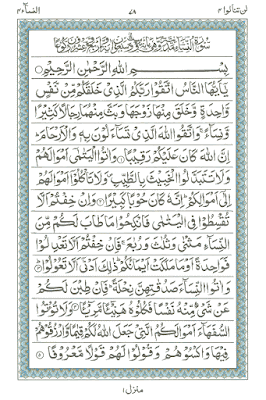 لن تنالوا ٤
٧٨
النسآء ٤
بِسْمِ اللّٰهِ الرَّحْمٰنِ الرَّحِيْمِ
يٰٓاَيُّهَا النَّاسُ اتَّقُوْا رَبَّكُمُ الَّذِيْ خَلَقَكُمْ مِّنْ نَّفْسٍ
وَّاحِدَةٍ وَّخَلَقَ مِنْهَا زَوْجَهَا وَبَثَّ مِنْهُمَا رِجَالًا كَثِيْرًا
وَّنِسَآءً ۚ وَاتَّقُوا اللّٰهَ الَّذِيْ تَسَآءَلُوْنَ بِهٖ وَالْاَرْحَامَ ؕ
اِنَّ اللّٰهَ كَانَ عَلَيْكُمْ رَقِيْبًا ۝ وَاٰتُوا الْيَتٰمٰٓى اَمْوَالَهُمْ
وَلَا تَتَبَدَّلُوا الْخَبِيْثَ بِالطَّيِّبِ ۪ وَلَا تَاْكُلُوْٓا اَمْوَالَهُمْ
اِلٰٓى اَمْوَالِكُمْ ؕ اِنَّهٗ كَانَ حُوْبًا كَبِيْرًا ۝ وَاِنْ خِفْتُمْ اَلَّا
تُقْسِطُوْا فِي الْيَتٰمٰى فَانْكِحُوْا مَا طَابَ لَكُمْ مِّنَ
النِّسَآءِ مَثْنٰى وَثُلٰثَ وَرُبٰعَ ۚ فَاِنْ خِفْتُمْ اَلَّا تَعْدِلُوْا
فَوَاحِدَةً اَوْ مَا مَلَكَتْ اَيْمَانُكُمْ ؕ ذٰلِكَ اَدْنٰٓى اَلَّا تَعُوْلُوْا ۝
وَاٰتُوا النِّسَآءَ صَدُقٰتِهِنَّ نِحْلَةً ؕ فَاِنْ طِبْنَ لَكُمْ
عَنْ شَيْءٍ مِّنْهُ نَفْسًا فَكُلُوْهُ هَنِيْٓئًا مَّرِيْٓئًا ۝ وَلَا تُؤْتُوا
السُّفَهَآءَ اَمْوَالَكُمُ الَّتِيْ جَعَلَ اللّٰهُ لَكُمْ قِيٰمًا وَّارْزُقُوْهُمْ
فِيْهَا وَاكْسُوْهُمْ وَقُوْلُوْا لَهُمْ قَوْلًا مَّعْرُوْفًا ۝
منزل ١